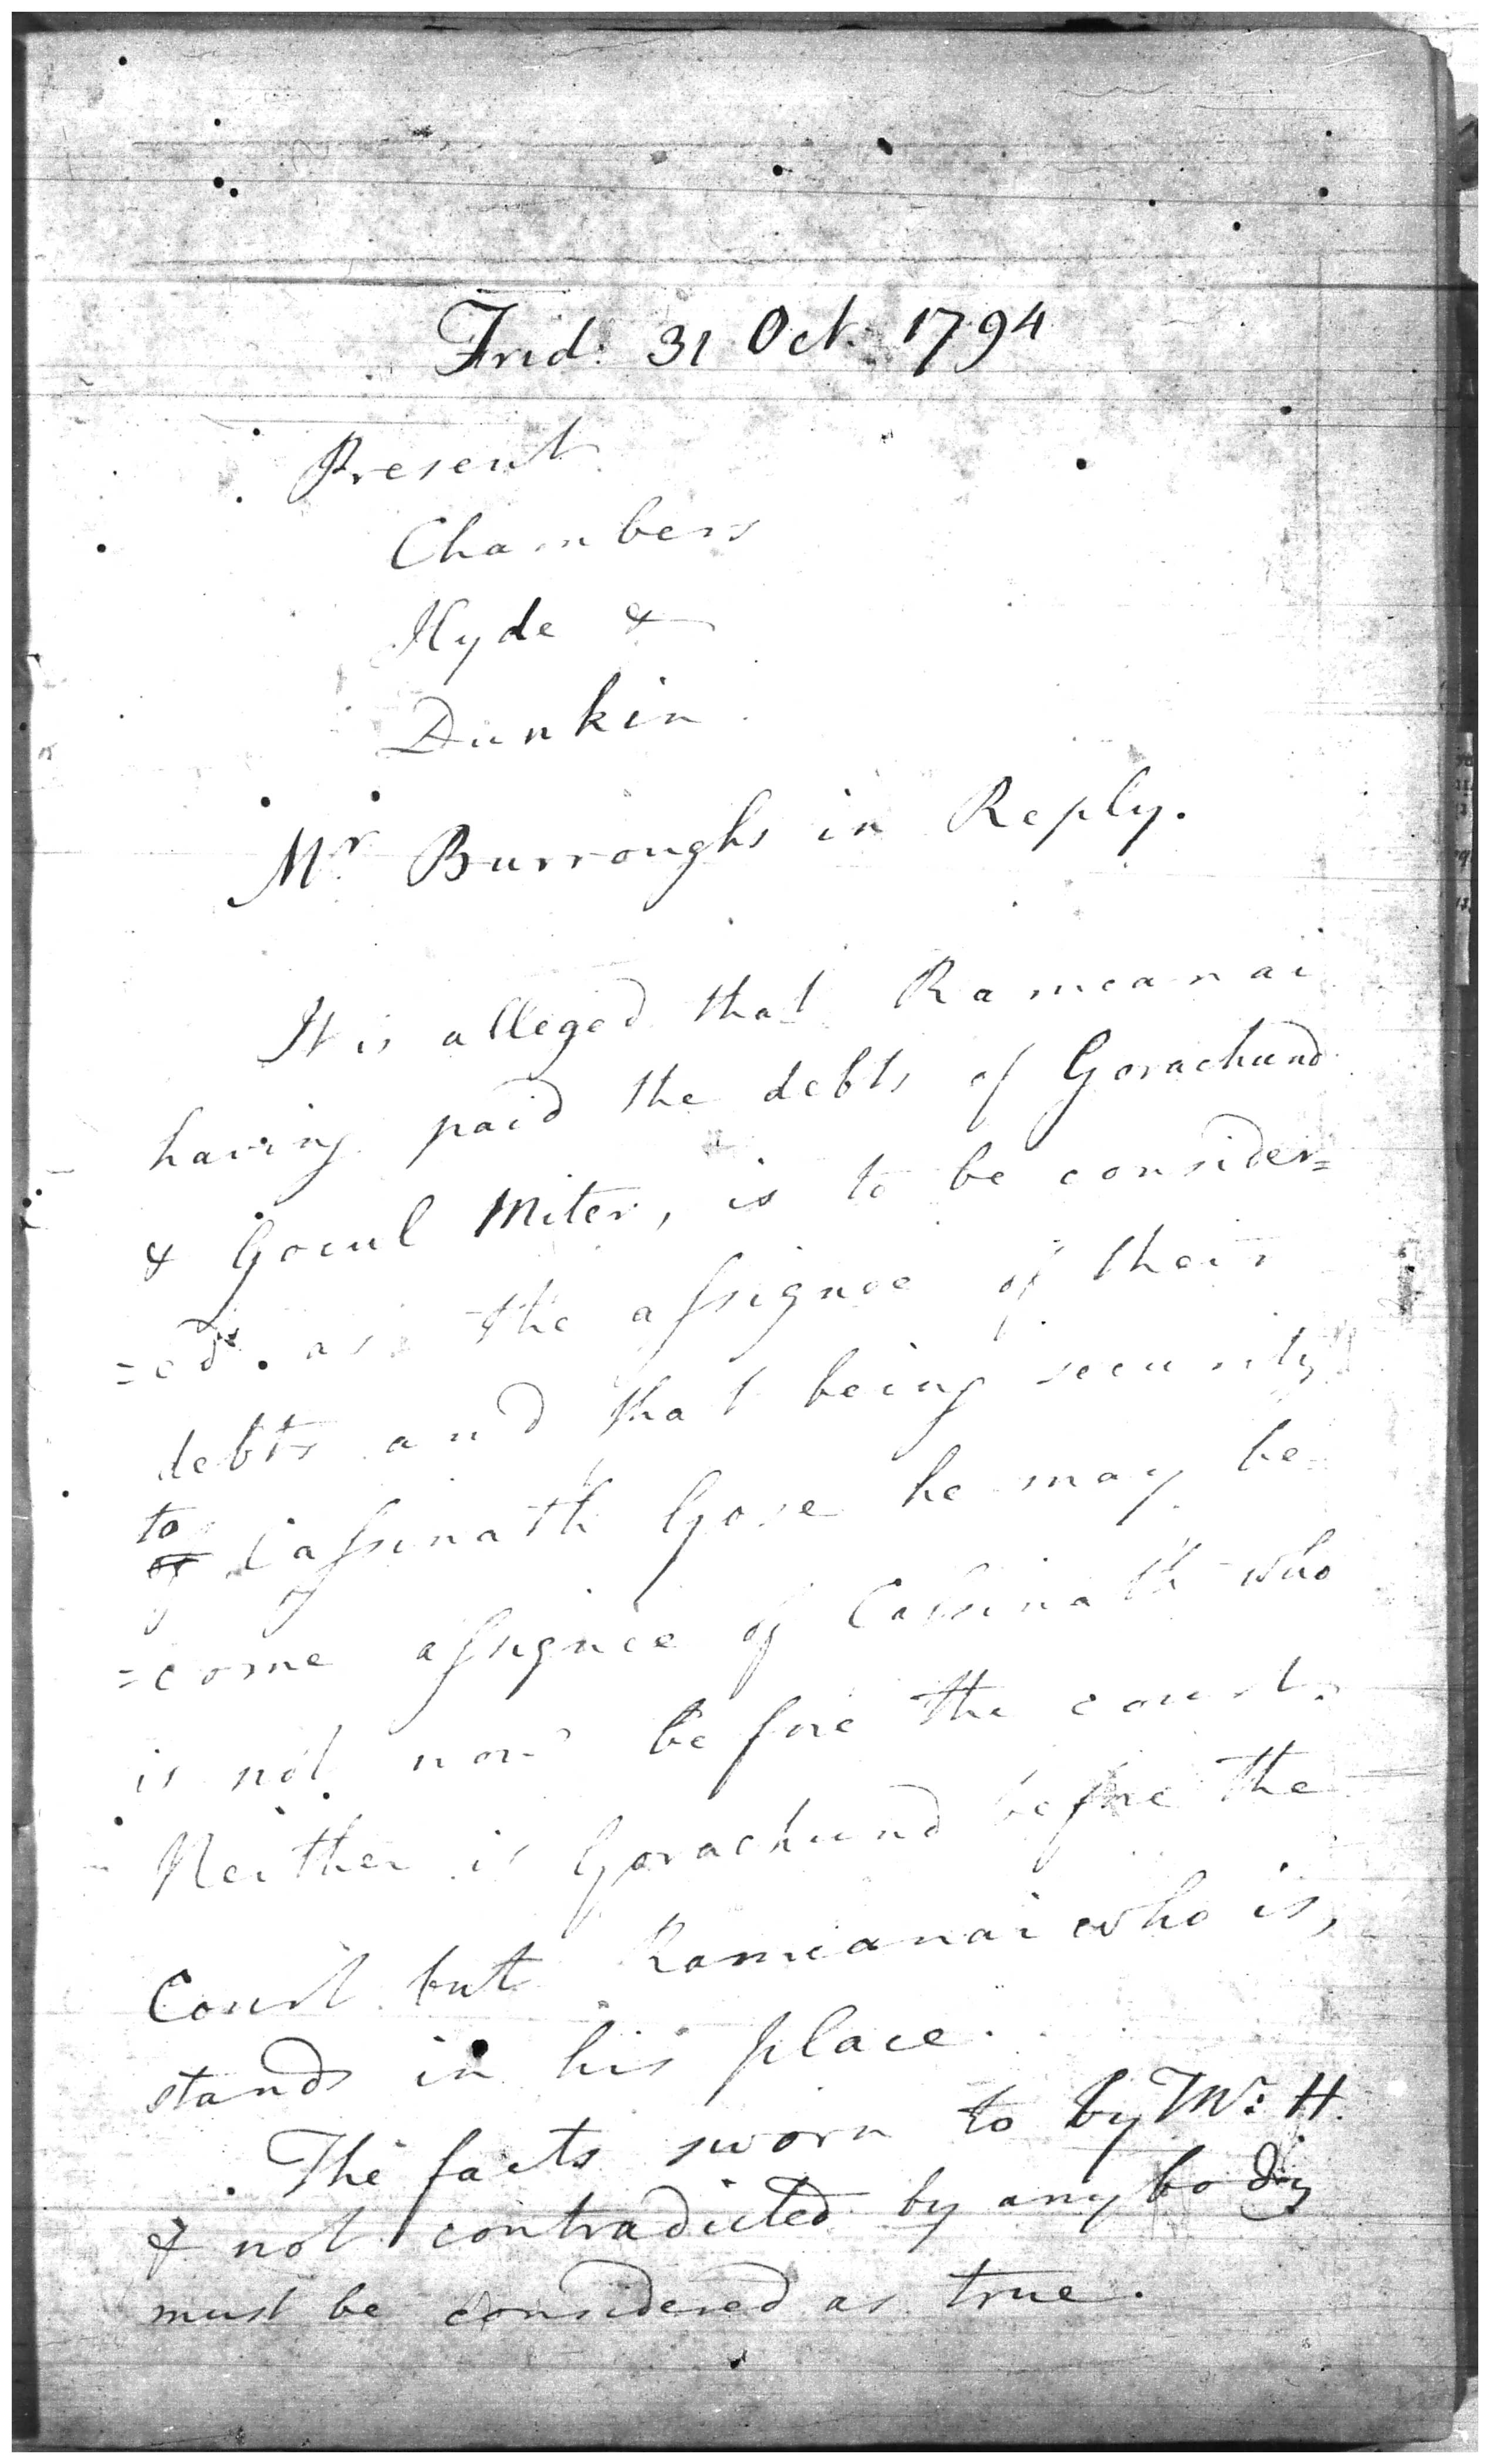 Frid: 31 Oct. 1794
Present
Chambers
Hyde &
Dunkin.
Mr Burroughs in Reply.
It is alleged that Ramcanai
having paid the debts of Gorachund
& Gocul Miter, is to be consider=
=ed. as the assignee of their
debts and that being security
to of Cassinath Gose he may be=
=come assignee of Cassinath who
is not now before the court.
Neither is Gorachund before the
Court but Ramcanai who is,
stands in his place.
The facts sworn to by Mr. H.
& not contradicted by any body
must be considered as true.